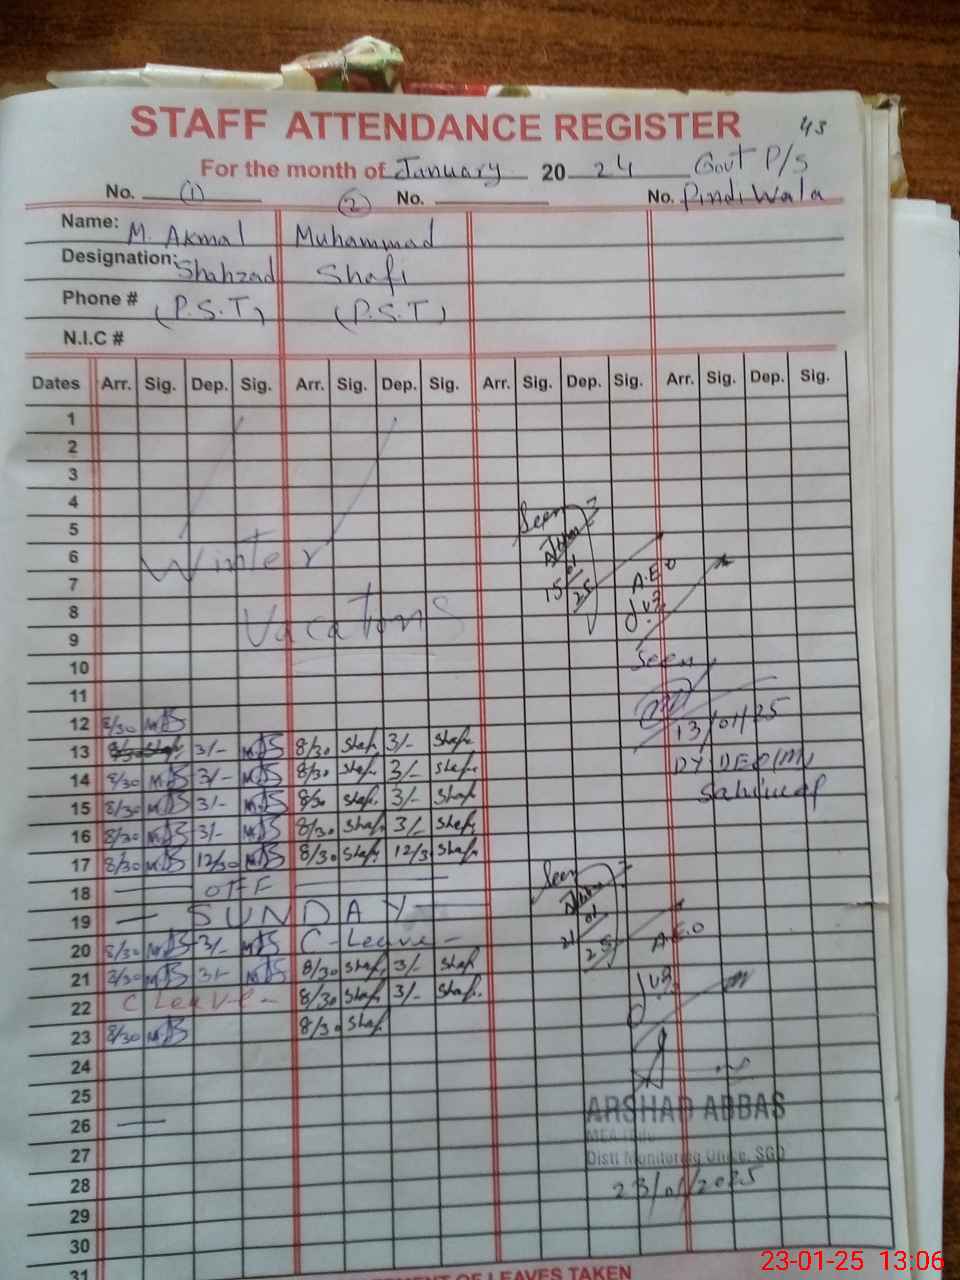 STAFF ATTENDANCE REGISTER 43
For the month of January 20 24 Govt P/S
No. (1) (2) No. No. PindiWala
Name: M. Akmal Muhammad
Designation: Shahzad Shafi
Phone # (P.S.T) (P.S.T)
N.I.C #
Dates Arr. Sig. Dep. Sig. Arr. Sig. Dep. Sig. Arr. Sig. Dep. Sig. Arr. Sig. Dep. Sig.
1
2
3
4 Seen
5
6 Winter
7 15 01 25 A.E.O
8 Vacations
9
10 Seen
11
12 8/30 13/01/25
13 3/- 8/30 Shafi 3/- Shafi
14 8/30 3/- 8/30 Shafi 3/- Shafi DY DEO(M)
15 8/30 3/- 8/30 Shafi 3/- Shafi Sahiwal
16 8/30 3/- 8/30 Shafi 3/- Shafi
17 8/30 12/30 8/30 Shafi 12/3 Shafi
18 OFF Seen
19 SUNDAY
20 8/30 3/- C-Leave - 21 01 25 A.E.O
21 8/30 3/- 8/30 Shafi 3/- Shafi
22 C Leave - 8/30 Shafi 3/- Shafi
23 8/30 8/30 Shafi
24
25 ARSHAD ABBAS
26 MEA
27 Distt Monitoring Office, SGD
28 23/01/2025
29
30
31
OF LEAVES TAKEN
23-01-25 13:06